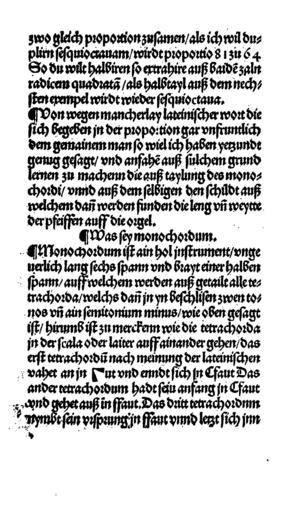 zwo gleich proportion zusamen/als ich wil du-
plirn sesquioctauam/wirdt proportio 81 zu 64
So du wilt halbiren so extrahire auß baidē zaln
radicem quadratā/als halbtayl auß dem nech-
sten exempel wirdt wieder sesquioctaua.
¶Von wegen mancherlay lateinischer wort die
sich begeben in der proportion gar vnfruntlich
dem gemainem man so wiel ich haben yetzundt
genug gesagt/vnd anfahē auß sulchem grund
lernen zu machenn die auß taylung des mono-
chordi/vnnd auß dem selbigen den schildt auß
welchem dañ werden funden die leng vñ weytte
der pfeiffen auff die orgel.
¶Was sey monochordum.
¶Monochordum ist ain hol jnstrument/vnge
uerlich lang sechs spann vnd brayt einer halben
spann/auff welchem werden auß getailt alle te-
trachorda/welchs dañ jn yn beschlisen zwen to-
nos vñ ain semitonium minus/wie oben gesagt
ist/hirumb ist zu merckenn wie die tetrachorda
jn der scala oder laiter auff ainander gehen/das
erst tetrachordū nach meinung der lateinischen
vahet an jn Γut vnd enndt sich in Cfaut Das
ander tetrachordum hadt sein anfang jn Cfaut
vnd gehet auß in ffaut. Das dritt tetrachordum
nymbt sein vrsprung jn ffaut vnnd letzt sich jnn